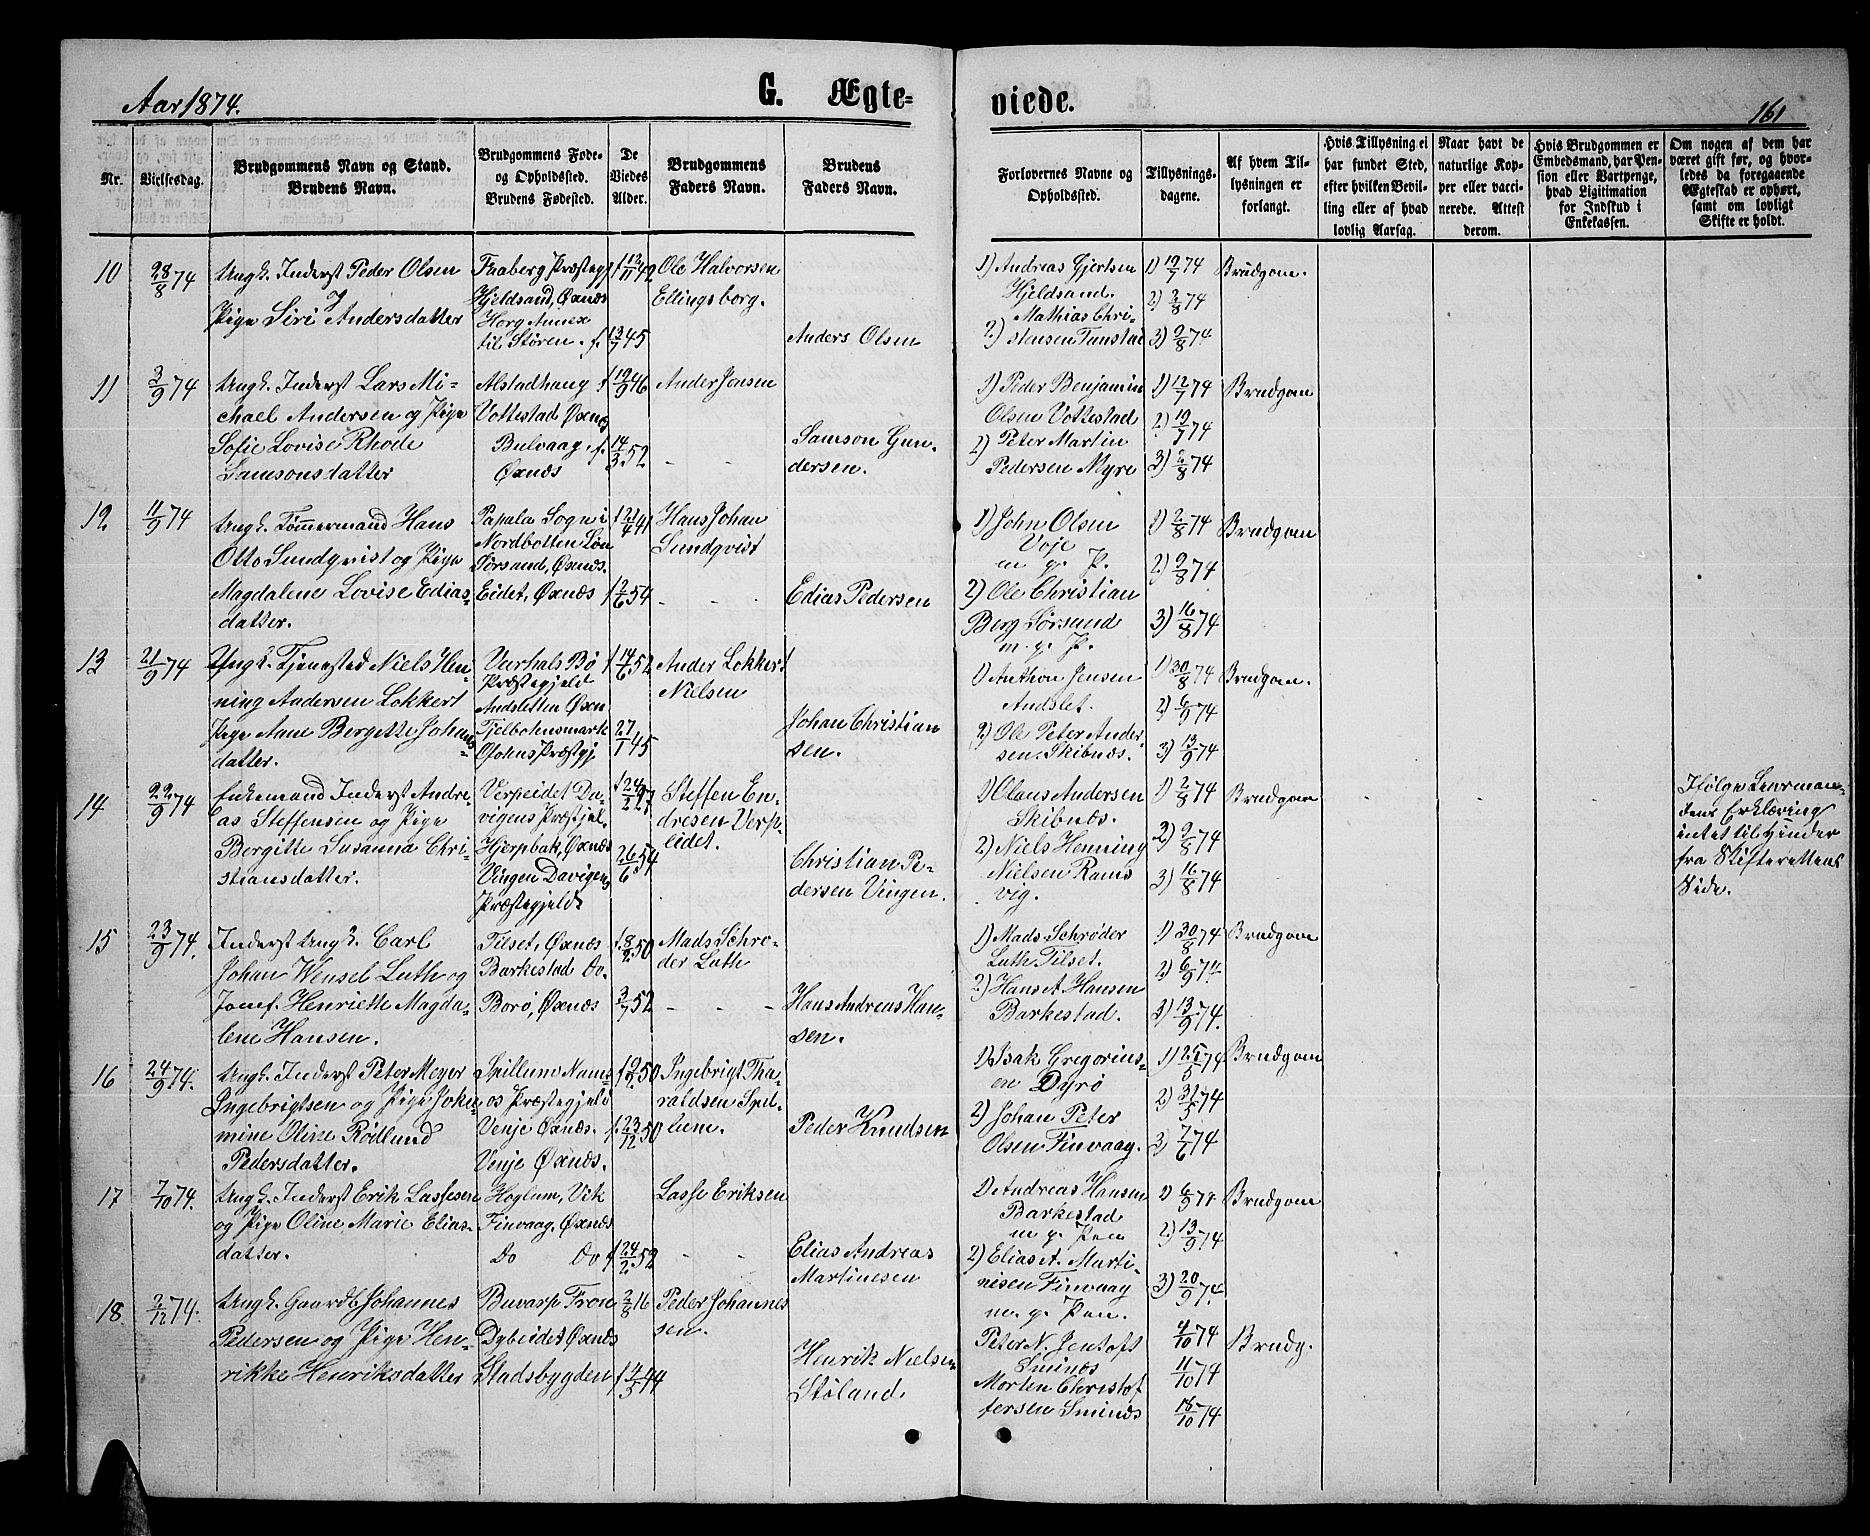 Aar 1874.
G. Ægte-
viede.
161
Nr.
Vielsesdag.
Brudgommens Navn og Stand.
Brudens Navn.
Brudgommens Føde-
og Opholdssted.
Brudens Fødested.
De
Viedes
Alder.
Brudgommens
Faders Navn.
Brudens
Faders Navn.
Forlovernes Navne og
Opholdssted.
Tillysnings-
dagene.
Af hvem Til-
lysningen er
forlangt.
Hvis Tillysning ei
har fundet Sted,
efter hvilken Bevil-
ling eller af hvad
lovlig Aarsag.
Naar havt de
naturlige Kop-
per eller vacci-
nerede. Attest
derom.
Hvis Brudgommen er
Embedsmand, har Pen-
sion eller Vartpenge,
hvad Legitimation
for Indskud i
Enkekassen.
Om nogen af dem har
været gift før, og hvor-
ledes da foregaaende
Ægteskab er ophørt,
samt om lovligt
Skifte er holdt.
10
28/8 74
Ungk. Inderst Peder Olsen
Pige Siri Andersdatter
Faaberg Præstegj
Hjeldsand, Øxnæs
Horg Annex
til Støren. f.
12/11 42
13/7 45
Ole Halvorsen
Ellingsborg.
Anders Olsen
1) Andreas Gjertsen
Hjeldsand.
Mathias Chri-
2) stensen Tunstad
1) 19/7 74
2) 2/8 74
3) 9/8 74
Brudgom.
11
3/9 74
Ungk. Inderst Lars Mi-
chael Andersen og Pige
Sofie Lovise Rhode
Samsonsdatter
Alstadhaug f
Vottestad Øxnæs
Bulvaag, f.
Øxnæs
19/9 46
14/3 52
Ander Jensen
- -
Samson Gun-
dersen.
1) Peder Benjamin
Olsen Vottestad
2) Peter Martin
Pedersen Myre
1) 12/7 74
2) 19/7 74
3) 2/8 74
Brudgom
12
11/9 74
Ungk. Tømmermand Hans
Otto Sundqvist og Pige
Magdalene Lovise Edias-
datter.
Papala Sogn i
Nordbotten Len
Sørsand, Øxnæs.
Eidet, Øxnæs
f 21/4 41
f 2/6 54
Hans Johan
Sundqvist
- -
Edias Pedersen
1) John Olsen
Voje
m. p. P.
2) Ole Christian
Berg Sørsand
m. p. P.
1) 2/8 74
2) 9/8 74
3) 16/8 74
Brudgom
13
21/9 74
Ungk. Tjenested Niels Hen-
ning Andersen Lokkert
Pige Ane Bergitte Johans-
datter.
Vaarhals Bø
Præstegjeld
Andsletten Øxn
Tjelbohnsmark
Ofotens Præstgj
f 14/6 52
27/1 45
Ander Lokkert
Nielsen
Johan Christian
sen.
1) Anthon Jensen
Andslet.
2) Ole Peter Ander-
sen. Skibnæs.
1) 30/8 74
2) 6/9 74
3) 13/9 74
Brudgom.
14
22/9 74
Enkemand Inderst Andre-
as Steffensen og Pige
Bergitte Susanna Chri-
stiansdatter.
Verpeidet Da-
vigens Præstgjel.
Hjerpbak, Øxnæs
Vingen Davigens
Præstegjeld
f. 24/2 27
26/6 54
Steffen En-
dresen Verp-
eidet.
Christian Pe-
dersen Vingen.
1) Olaus Andersen
Skibnæs.
2) Niels Henning
Nielsen Rams
vig.
1) 2/8 74
2) 9/8 74
3) 16/8 74
Brudgom
Ifølge Lensman-
dens Erklæring
intet til Hinder
fra Skifterettens
Side.
15
23/9 74.
Inderst Ungk. Carl
Johan Wensel Luth og
Jomf. Henriette Magda-
lene Hansen.
Tilset, Øxnæs
Barkestad Do.
Borø, Øxnæs
f. 8/2 50
3/7 52
Mads Schrø-
der Luth
- - -
Hans Andreas Han-
sen.
1) Mads Schrøder
Luth Tilset.
2) Hans A. Hansen
Barkestad.
1) 30/8 74
2) 6/9 74.
3) 13/9 74.
Brudgom
16
24/9 74.
Ungk. Inderst Peter Meyer
Ingebrigtsen og Pige John-
mine Oline Rødlund
Pedersdatter.
Spillum Nams-
os Præstegjeld
Venje Øxnæs.
Venje Øxnæs.
f. 23/12 50
Ingebrigt Tha-
raldsen Spil-
lum.
Peder Knudsen
1) Isak Gregorius-
en Dyrø
2) Johan Peter
Olsen Finvaag.
1) 25/5 74
2) 31/5 74
3) 7/6 74
Brudgom
17
7/10 74.
Ungk. Inderst Erik Lassesen
og Pige Oline Marie Elias-
datter.
Høglum, Vik
Finvaag, Øxnæs
Do Do
f 24/2 52
Lasse Eriksen
- -
Elias Andreas
Martinesen
1) Andreas Hansen
Barkestad
m. p. Pen
2) Elias A. Marti-
nisen Finvaag
m. p. Pen.
1) 6/9 74
2) 13/9 74
3) 20/9 74.
Brudgom
18.
2/12 74.
Ungk. Gaardb Johannes
Pedersen og Pige Hen-
rikke Henriksdatter
Buvarp Fron
Dybeidet Øxnæs
Stadsbygden
2/8 16
f 4/3 44
Peder Johannes
sen.
Henrik Nielsen
Støland
Peter N. Jentoft
Smines
Morten Christof
fersen Smines
4/10 74
11/10 74
18/10 74
Brudg.